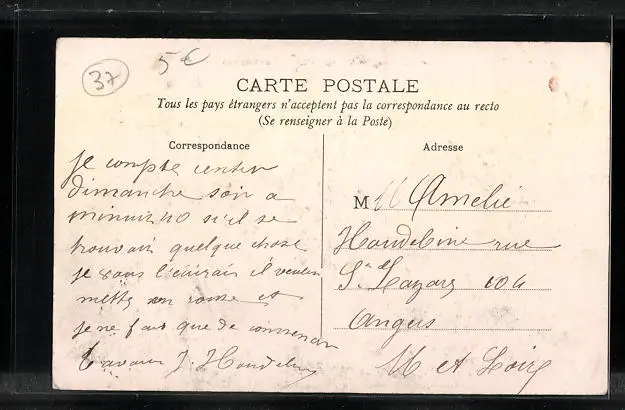 37
5€
CARTE POSTALE
Tous les pays étrangers n'acceptent pas la correspondance au recto
(Se renseigner à la Poste)
Correspondance
Adresse
je compte rentrer
dimanche soir a
minuit 40 s'il se
trouvait quelque chose
je vous l'écrirais il veulent
mettre en route et
je ne fait que de commencer
J. Houdebine
M lle Amelie
Houdebine rue
St Lazare 104
Angers
M et Loire